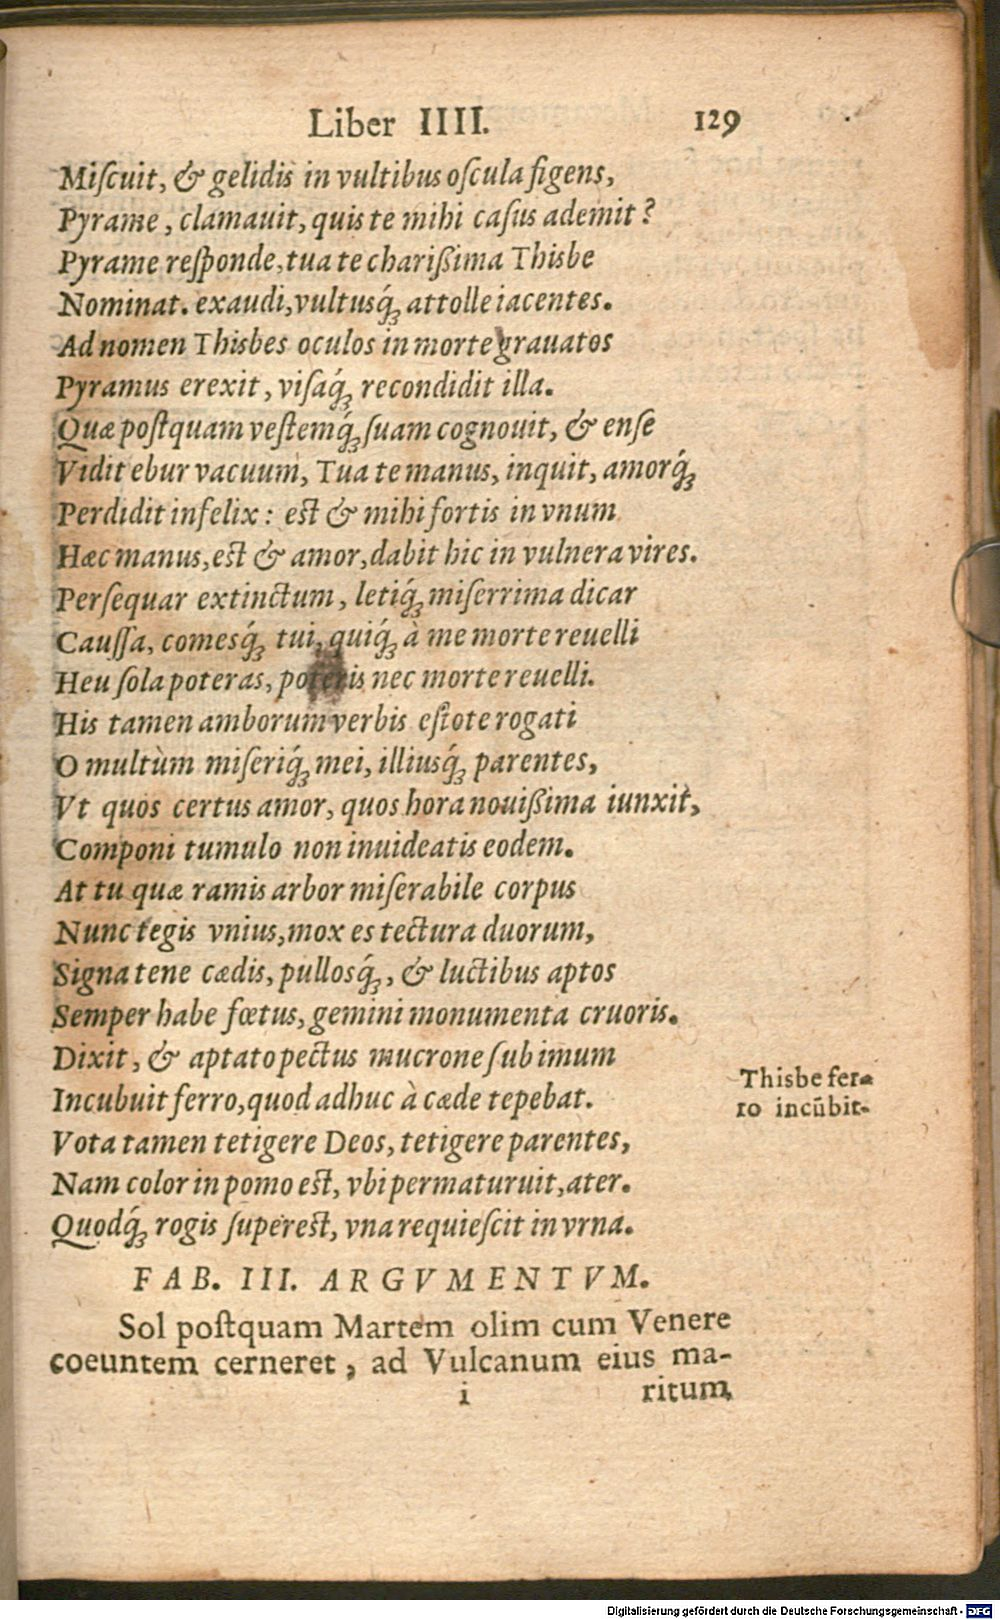 Liber IIII. 129
Miſcuit, & gelidis in vultibus oſcula figens,
Pyrame, clamauit, quis te mihi caſus ademit?
Pyrame reſponde, tua te chariſſima Thisbe
Nominat. exaudi, vultusq́; attolle iacentes.
Ad nomen Thisbes oculos in morte grauatos
Pyramus erexit, viſaq́; recondidit illa.
Quæ poſtquam veſtemq́; ſuam cognouit, & enſe
Vidit ebur vacuum, Tua te manus, inquit, amorq́;
Perdidit infelix: eſt & mihi fortis in vnum
Hæc manus, eſt & amor, dabit hic in vulnera vires.
Perſequar extinctum, letiq́; miſerrima dicar
Cauſſa, comesq́; tui, quiq́; à me morte reuelli
Heu ſola poteras, poteris nec morte reuelli.
His tamen amborum verbis eſtote rogati
O multùm miſeriq́; mei, illiusq́; parentes,
Vt quos certus amor, quos hora nouiſſima iunxit,
Componi tumulo non inuideatis eodem.
At tu quæ ramis arbor miſerabile corpus
Nunc tegis vnius, mox es tectura duorum,
Signa tene cædis, pullosq́;, & luctibus aptos
Semper habe fœtus, gemini monumenta cruoris.
Dixit, & aptato pectus mucrone ſub imum
Incubuit ferro, quod adhuc à cæde tepebat.
Thisbe fer-
ro incūbit.
Vota tamen tetigere Deos, tetigere parentes,
Nam color in pomo eſt, vbi permaturuit, ater.
Quodq́; rogis ſupereſt, vna requieſcit in vrna.
FAB. III. ARGVMENTVM.
Sol poſtquam Martem olim cum Venere
coeuntem cerneret, ad Vulcanum eius ma-
i ritum,
Digitalisierung gefördert durch die Deutsche Forschungsgemeinschaft - DFG